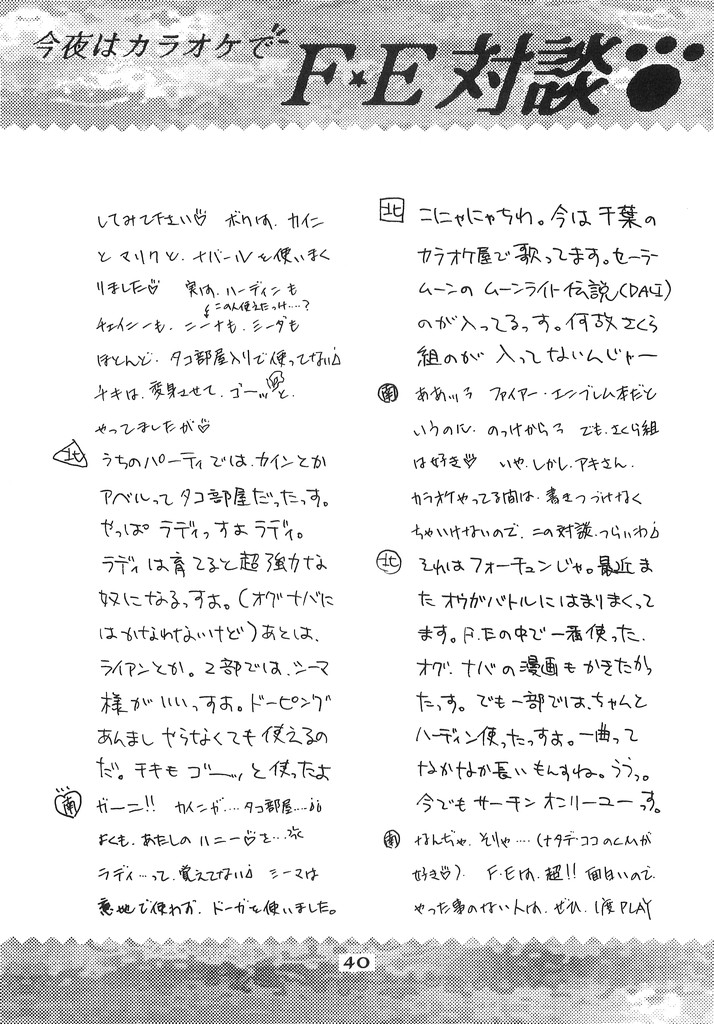 今夜はカラオケで
F★E対談
北 こにゃにゃちわ。今は千葉の
カラオケ屋で歌ってます。セーラー
ムーンの ムーンライト伝説(DALI)
のが入ってるっす。何故さくら
組のが 入ってないんじゃー
南 ああッろ ファイアー・エンブレム本だと
いうのに、のっけからろ でも、さくら組
は好き♡ いや、しかし、アキさん、
カラオケやってる間は、書きつづけなく
ちゃいけないので、この対談、つらいわ♪
北 それはフォーチュンじゃ。最近ま
たオウガバトルにはまりまくって
ます。F.Eの中で一番使った、
オグ、ナバの漫画もかきたかっ
たっす。でも一部では、ちゃんと
ハーディン使ったっすよ。一曲って
なかなか長いもんすね。ううっ。
今でもサーチン オンリーユーっす。
南 なんぢゃ、そりゃ‥‥(ナタデ・ココのCMが
好き♡)。 F.Eは、超!!面白いので、
やった事のない人は、ぜひ、1度PLAY
してみて下さい♡ ボクは、カイン
と マリクと、ナバールを使いまく
りました♡ 実は、ハーディンも
この人使えたっけ‥‥?
チェイニーも、ニーナも、ミーダも
ほとんど、タコ部屋入りで使ってない♪
チキは、変身させて、ゴーッと、
やってましたが♡
北 うちのパーティでは、カインとか
アベルってタコ部屋だったっす。
やっぱ ラディっすよラディ。
ラディは育てると超強力な
奴になるっすよ。(オグナバに
はかなわないけど)あとは、
ライアンとか。2部では、シーマ
様がいいっすよ。ドーピング
あんまし やらなくても使えるの
だ。チキもゴーッと使ったよ
南 ガーン!! カインが‥‥タコ部屋‥‥
よくも、あたしの ハニー♡を‥‥
ラディ‥‥って、覚えてない♪ シーマは
意地で使わず、ドーガを使いました。
40